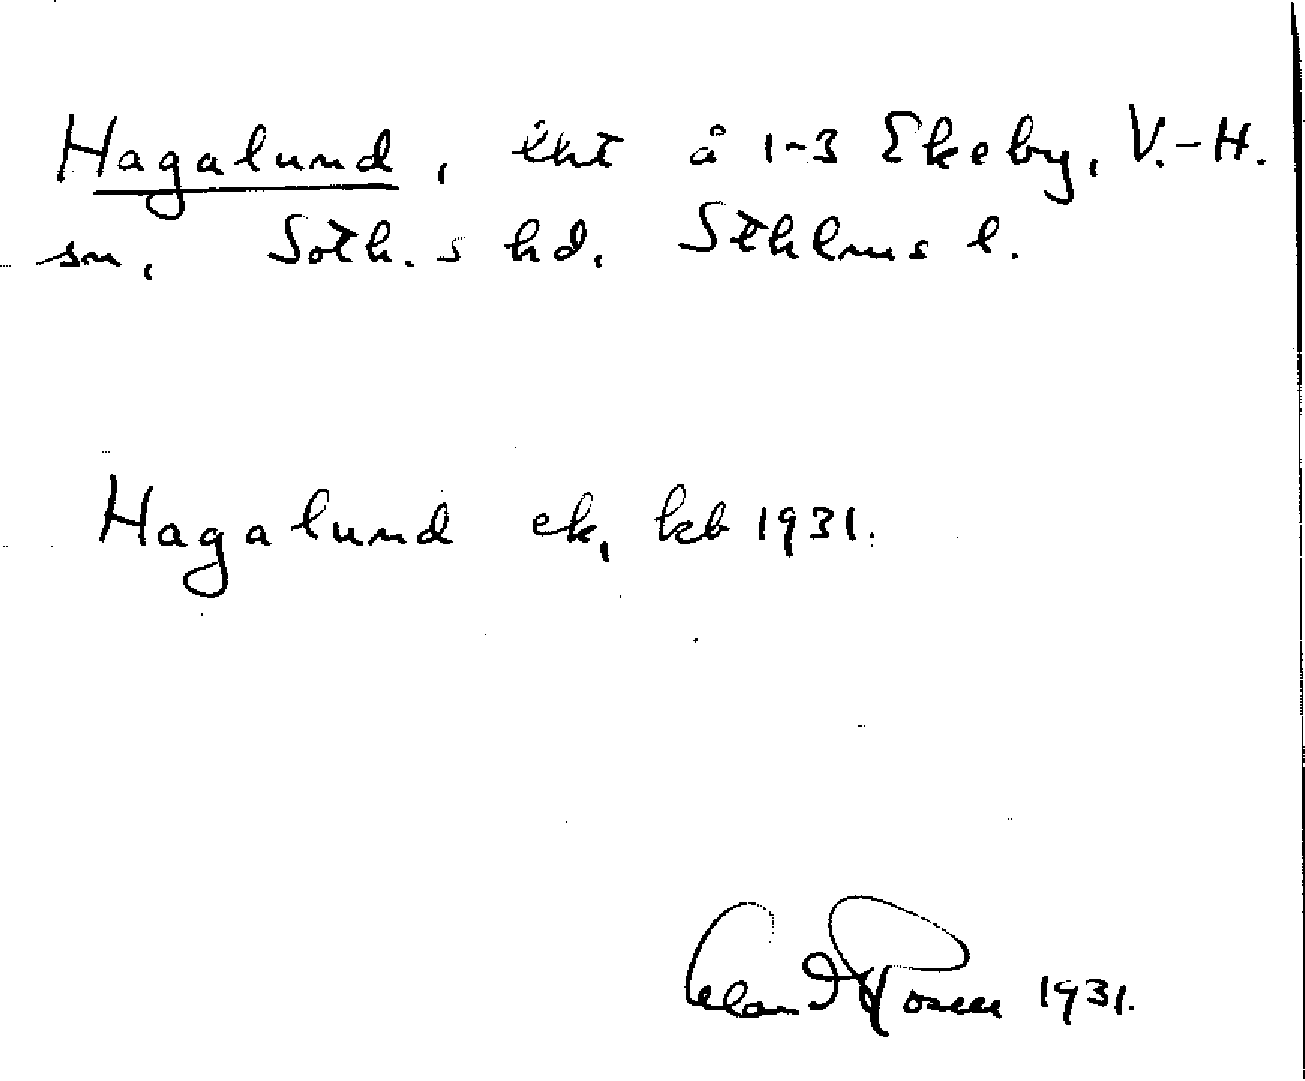 Hagalund, lht å 1-3 Ekeby, V.-H.
sn, Soth.s hd. Sthlms l.
Hagalund ek, kb 1931.
1931.